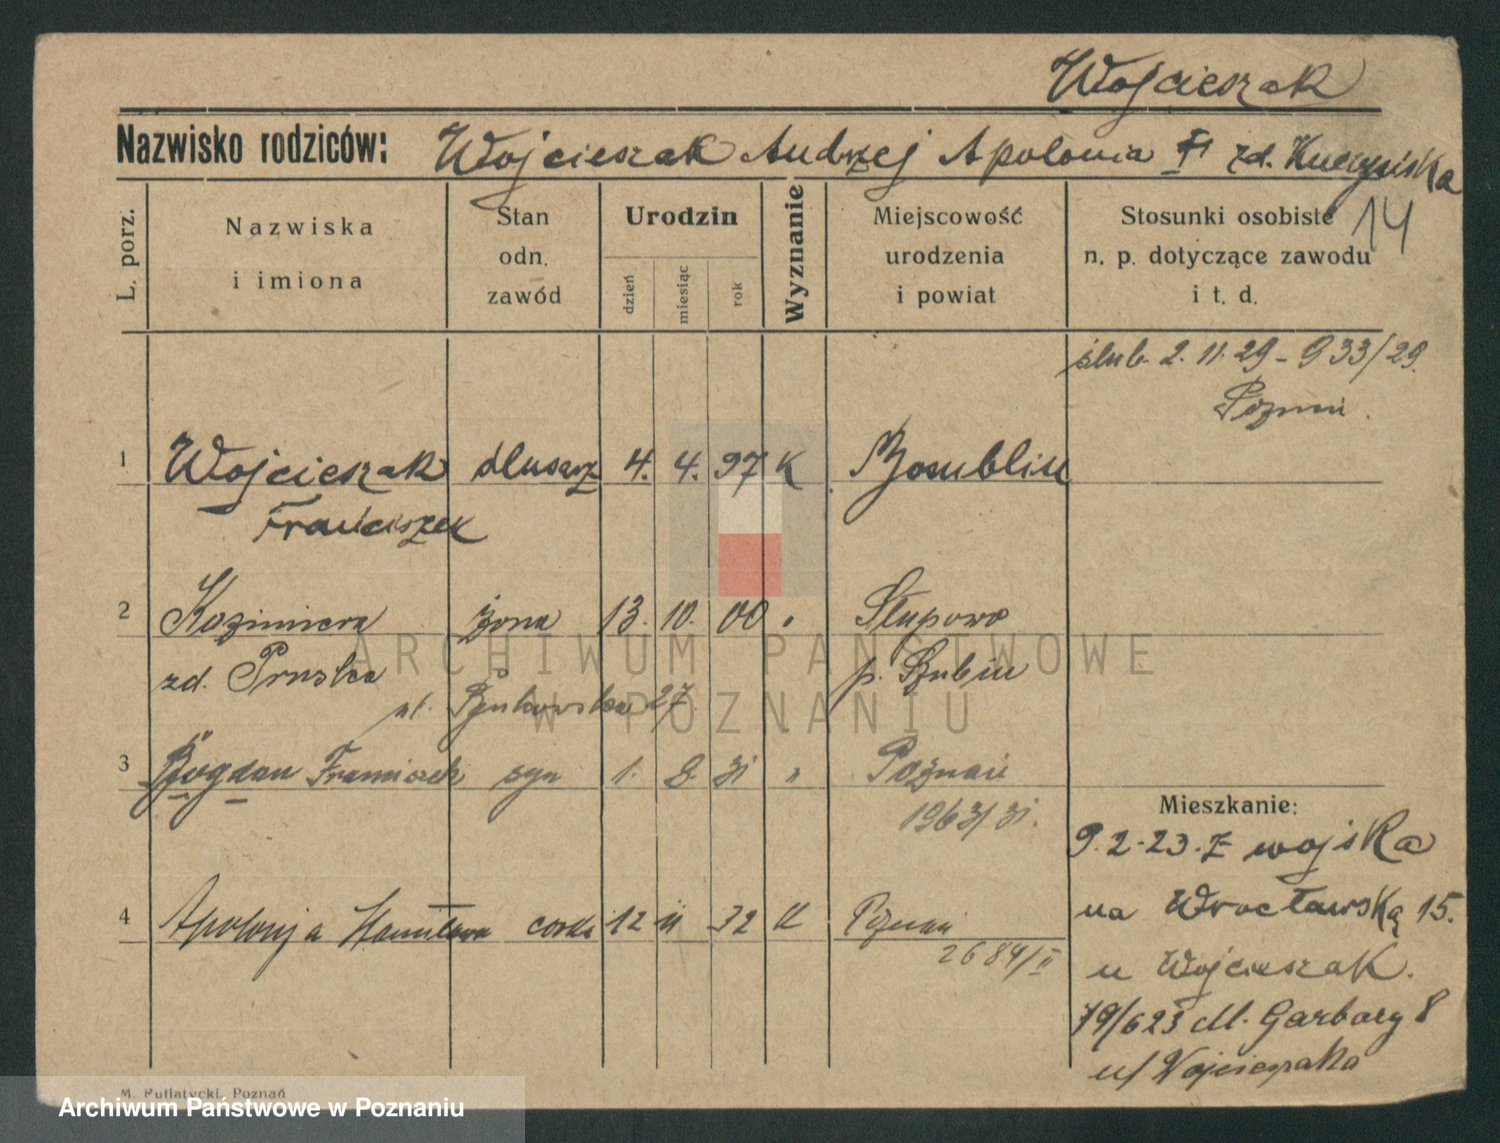 Wojcieszak
Nazwisko rodziców: Wojcieszak Andrzej Apolonia zd. Kuczyńska
14
L. porz.
Nazwiska
i imiona
Stan
odn.
zawód
Urodzin
dzień
miesiąc
rok
Wyznanie
Miejscowość
urodzenia
i powiat
Stosunki osobiste
n. p. dotyczące zawodu
i t. d.
ślub. 2. 11. 29 - 933/29.
Poznań.
1 Wojcieszak ślusarz 4. 4. 97 K
Franciszek
2 Kazimiera żona 13. 10. 00 " Słupowo
zd. Pruska p. Szubin
ul. Bukowska 27
3 Bogdan Franciszek syn 1. 8. 31 " Poznań
1963/31.
4 Apolonja córka 12 11 32 K Poznań
2684/II
Mieszkanie:
9.2.23. z wojska
na Wrocławską 15.
u Wojcieszak.
19/623 M. Garbary 8
u/ Wojcieszaka
M. Putiatycki, Poznań
ARCHIWUM PAŃSTWOWE
W POZNANIU
Archiwum Państwowe w Poznaniu